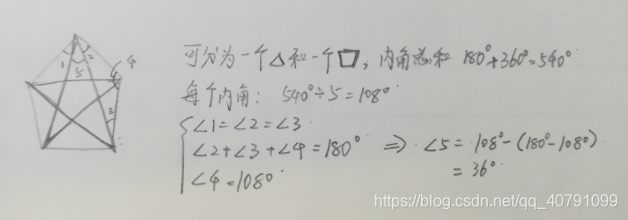 1 2 4
5
3
可分为一个△和一个□,内角总和 180°+360°=540°
每个内角: 540°÷5=108°
∠1=∠2=∠3
∠2+∠3+∠4=180° ⇒ ∠5= 108°-(180°-108°)
∠4=108° = 36°
https://blog.csdn.net/qq_40791099